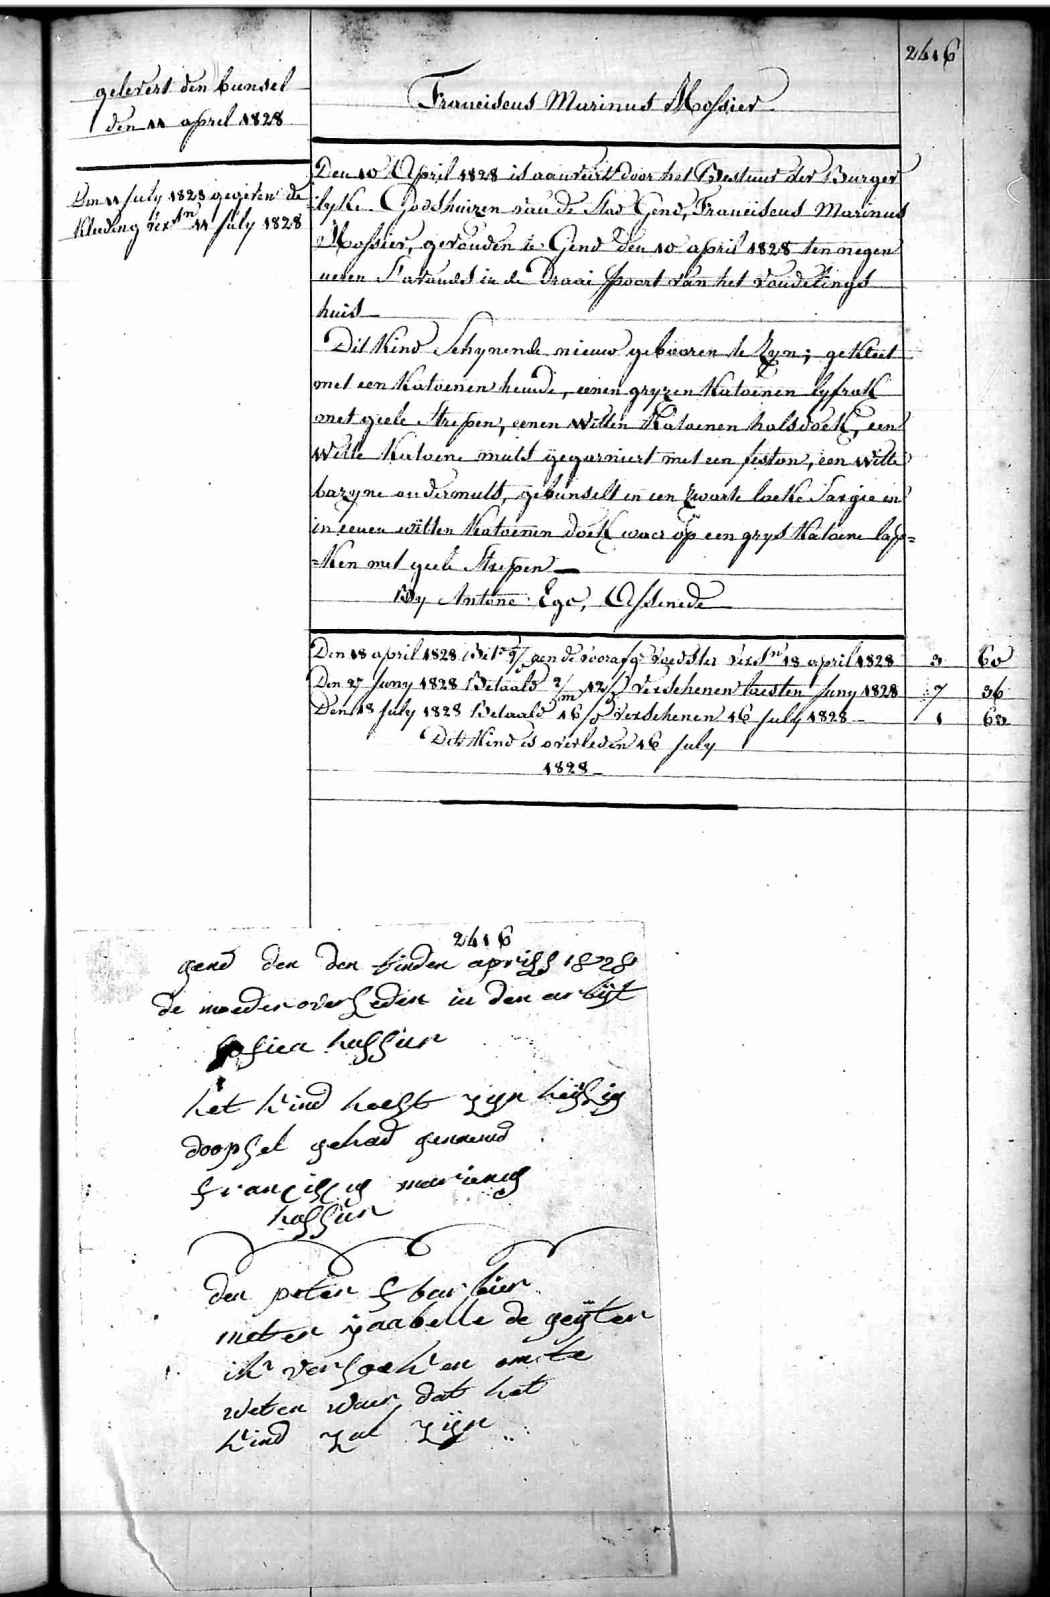 2416
gelevert den bunsel
den 11 april 1828
Den 11 July 1828 gegeven de
kleeding versn 11 July 1828
Franciscus Marinus Mossier
Den 10 April 1828 is aanveirt door het Bestuur der Burger
lyke Godshuizen van de Stad Gend, Franciscus Marinus
Mossier, gevonden te Gend den 10 april 1828 ten negen
ueren S'avonds in de Draai Poort van het vondelings
huis
Dit Kind Schynende nieuw gebooren te Zyn; gekleet
met een Katoenen hemde, eenen gryzen Katoenen lyfrok
met geele Strepen, eenen witten Katoenen halsdoek, een
Witte Katoene muts gegarniert met een feston, een witte
bazyne ondermuts, gebunselt in een zwarte laeke Sargie en
in eenen witten Katoenen doek waer op een grys Katoene lap=
=ken met geele Strepen
By Antone Ego, Assenede
Den 18 april 1828 Bet. gen de voorafg. Voedster versn 18 april 1828 3 60
Den 27 Juny 1828 Betaald 2/m 12/d Verschenen laesten Juny 1828 7 36
Den 18 July 1828 Betaald 16/d Verschenen 16 July 1828 1 63
Dit Kind is overleden 16 July
1828
2416
gend den den tinden april 1828
de moeder overleden in den arbyt
sofiea hossier
het kind heeft zyn heylig
doopsel gehad genaemd
franciscus marianus
hossier
den peter f barbier
meter ysabelle de geyter
ik versoeken om te
weten waer dat het
kind zal zyn